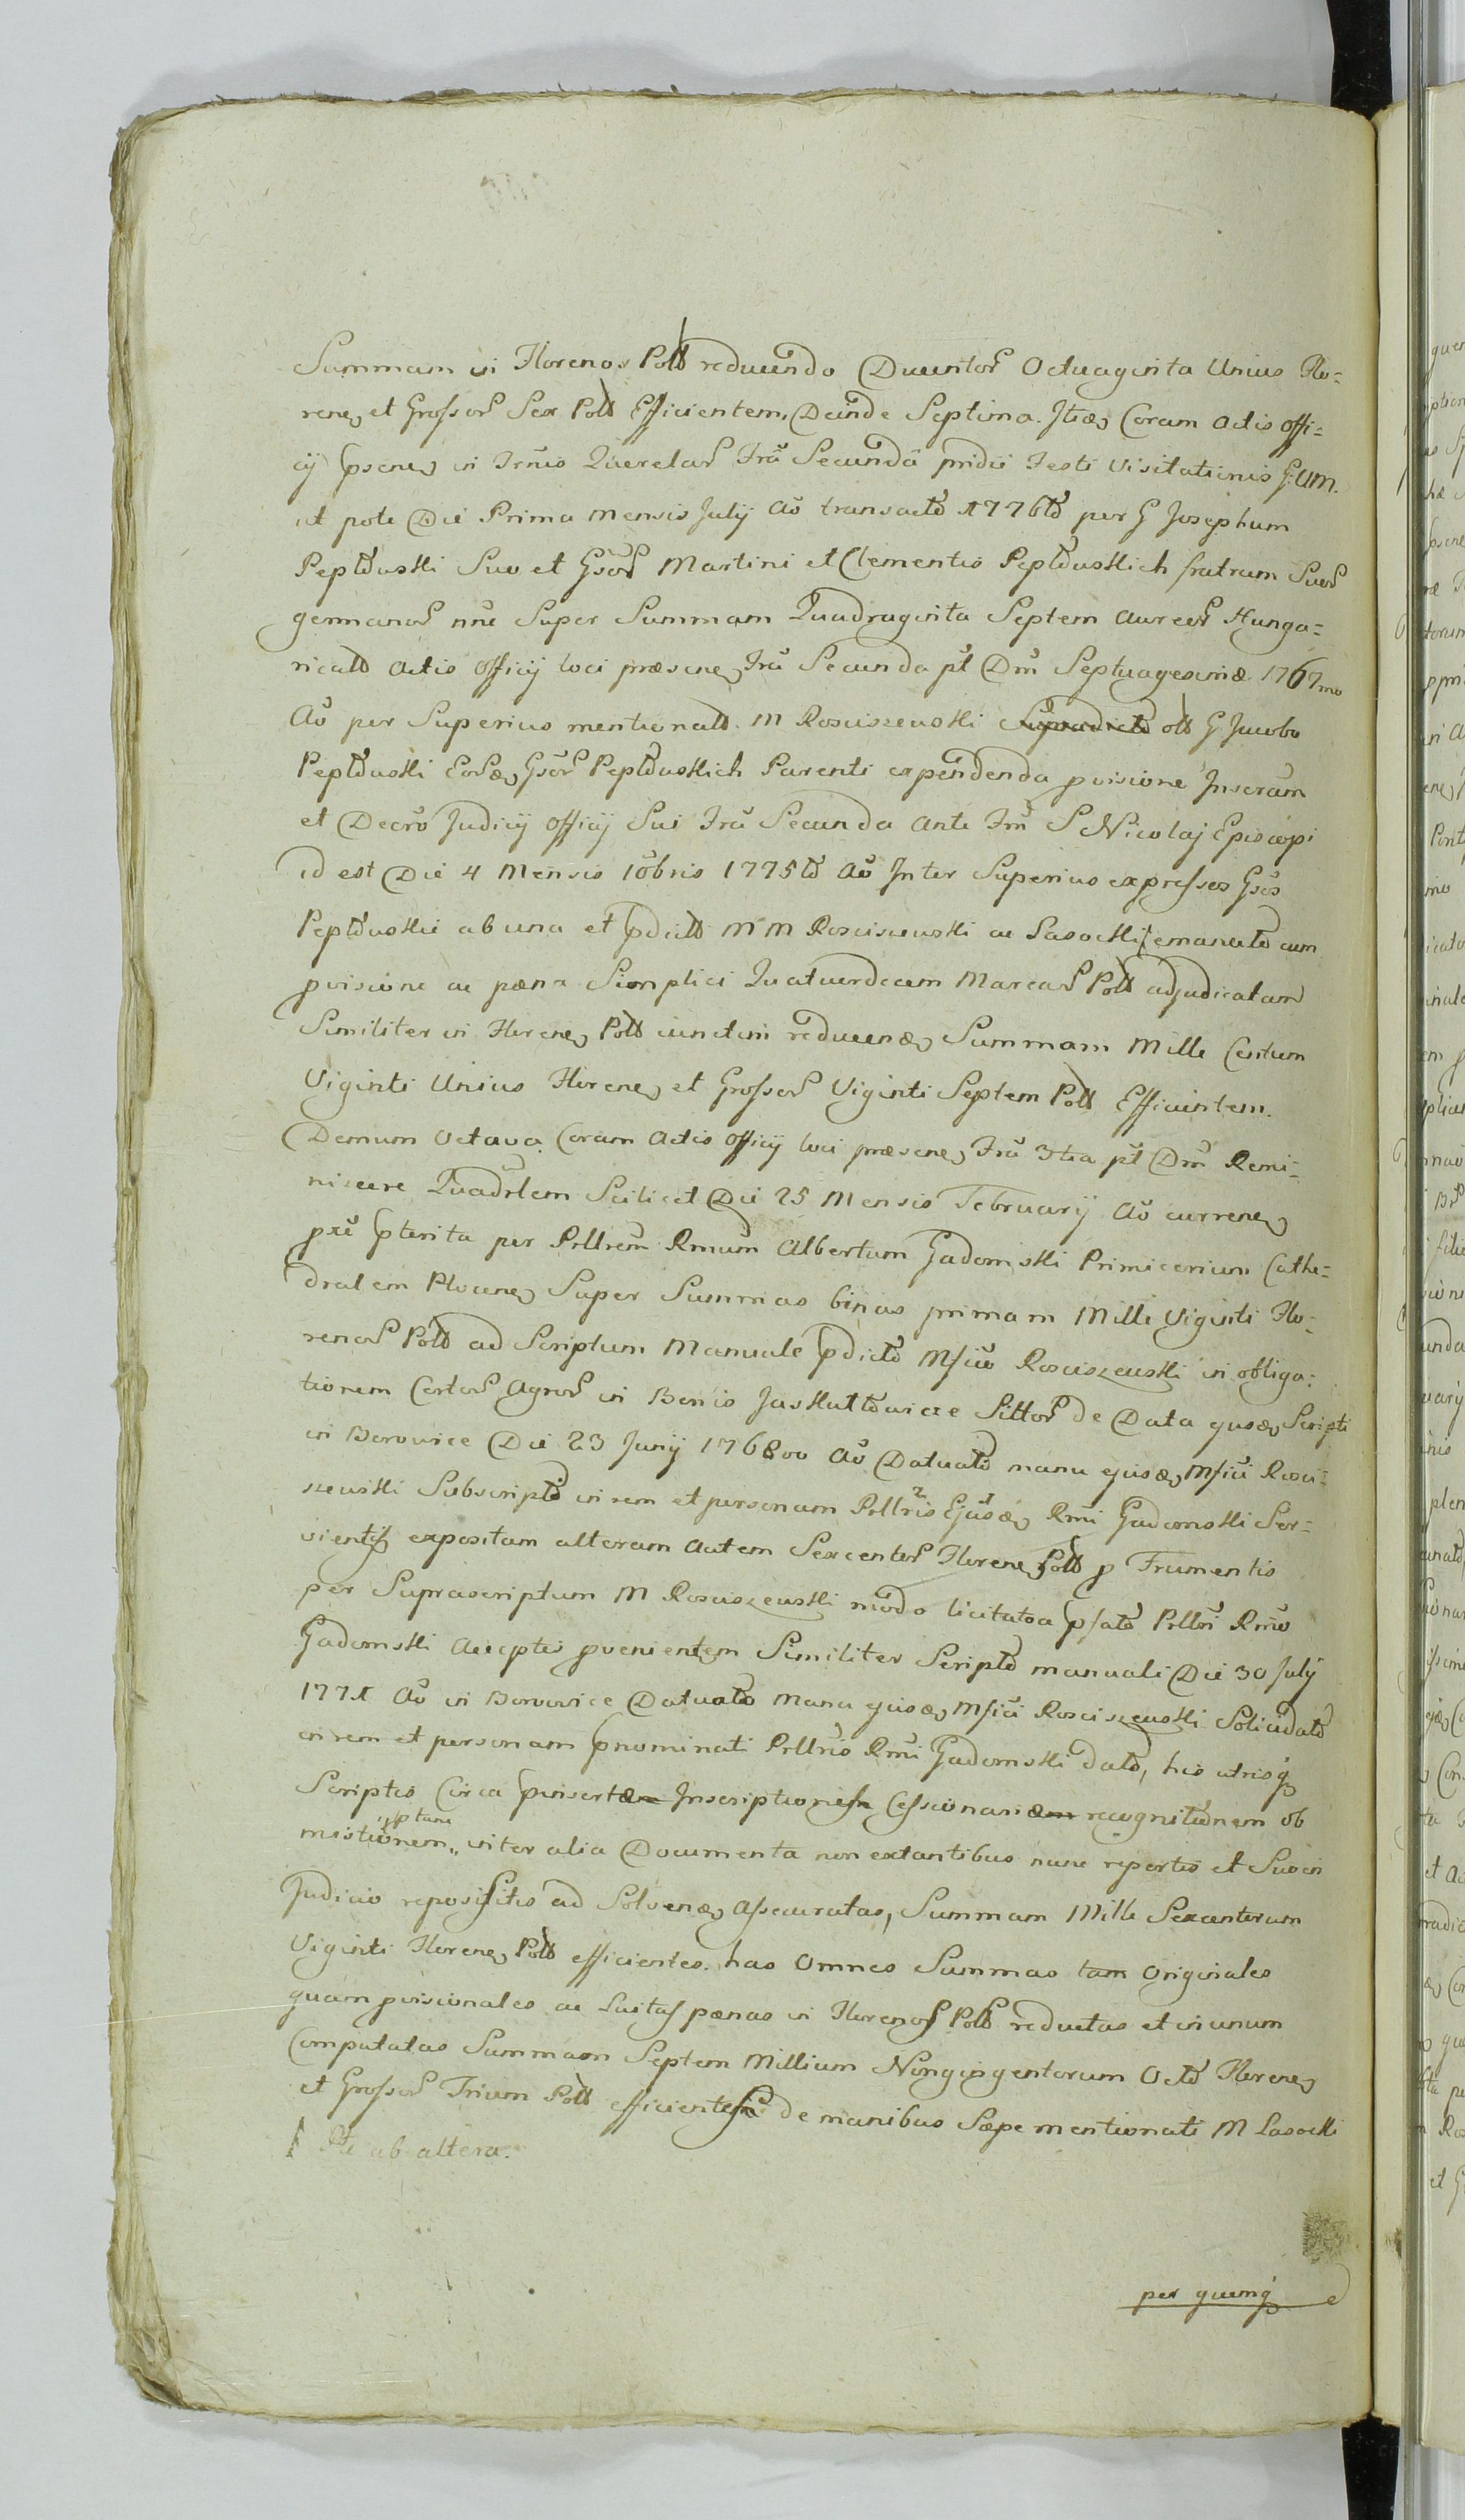 Summam in Florenos Poll reducendo Ducentor Octuaginta Unius Flo=
rene et Grossor Sex Poll Efficientem, Deinde Septima. Itidē Coram Actis Offi=
cij psene in Trnis Querelar Fria Secunda pridie Festi Visitationis G: VM.
ut pote Die Prima Mensis July Aō transacto 1776to per G Josephum
Pepłowski Suo et Gsor Martini et Clementis Pepłowskich fratrum Suor
germanor nne Super Summam Quadraginta Septem Aureor Hunga=
ricall Actis Officij loci præsene Fria Secunda pt Dm Septuagesimæ 1767mo
Aō per Superius mentionatt. M Rosciszewski Supradicto oll G Jacobo
Pepłowski Eorde Gsor Pepłowskich Parenti expendenda pvisione Inscram
et Decro Judicij Officij Sui Fria Secunda Ante Fm S Nicolaj Episcopi
id est Die 4 Mensis 10bris 1775to Aō Inter Superius expressos Gsos
Pepłowskie ab una et pdictt M M Rosciszewski ac Lasocki emanato cum
pvisione ac pæna Simplici Quatuordecem Marcar Poll adjudicatam
Similiter in Florene Poll cunctim reducende Summam Mille Centum
Viginti Unius Florene et Grossor Viginti Septem Poll Efficientem.
Demum Octava Coram Actis Officij loci præsene Fria 3tia pt Dm Remi=
niscere Quadrlem Scilicet Die 25 Mensis February Aō currene
pxe pterita per Prllrem Rmum Albertum Gadomski Primicerium Cathe=
dralem Plocene Super Summas binas primam Mille Viginti Flo=
renor Poll ad Scriptum Manuale pdicto Msico Rosciszewski in obliga=
tionem Certor Agror in Bonis Jaskułtowice Sittor de Data ejusde Scripti
in Borowice Die 23 Junij 1768vo Aō Datuato manu ejusde Msici Rosci=
szewski Subscripto in rem et personam Prllris Ejusde Rmi Gadomski Ser=
vientem expositam alteram Autem Sexcentor Florene Poll p Frumentis
per Suprascriptum M Rosciszewski modo licitatoa psato Prllri Rmo
Gadomski Acceptis pvenientem Similiter Scripto manuali Die 30 July
1771 Aō in Borowice Datuato Manu ejusde Msici Rosciszewski Solidato
in rem et personam pnominati Prllris Rmi Gadomski dato, his utrisq
Scriptis Circa pinsertæm Inscriptionem Cessionariæm recognitionem ob
mistionem, ptunc inter alia Documenta non extantibus nunc repertis et Suo in
Judicio reposititis ad Solvende Assecuratas, Summam Mille Sexcentorum
Viginti Florene Poll efficientes. has Omnes Summas tam Originales
quam pvisionales ac Luitas pænas in Florenos Poll reductas et in unum
Computatas Summam Septem Millium Nongengentorum Octo Florene
et Grossor Trium Poll efficientes de manibus Sæpe mentionati M Lasocki
Pte ab altera.
per quemq